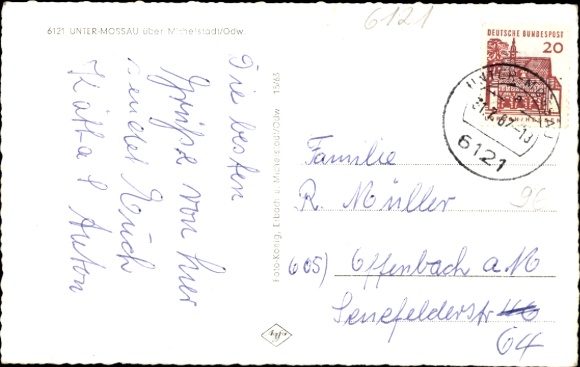 6121 UNTER-MOSSAU über Michelstadt/Odw.
6121
DEUTSCHE BUNDESPOST
20
6121
Die besten
Grüße von hier
sendet Euch
Kätha & Anton
Foto-König, Erbach u. Michelstadt/Odw. 15/65
Familie
R. Müller
96
605) Offenbach a.M
Senefelderstr
64
Agfa